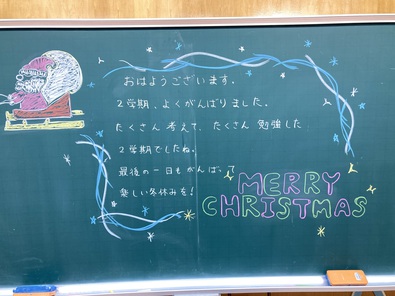 おはようございます。
2学期、よくがんばりました。
たくさん考えて、たくさん勉強した
2学期でしたね。
最後の一日もがんばって
楽しい冬休みを!
MERRY
CHRISTMAS